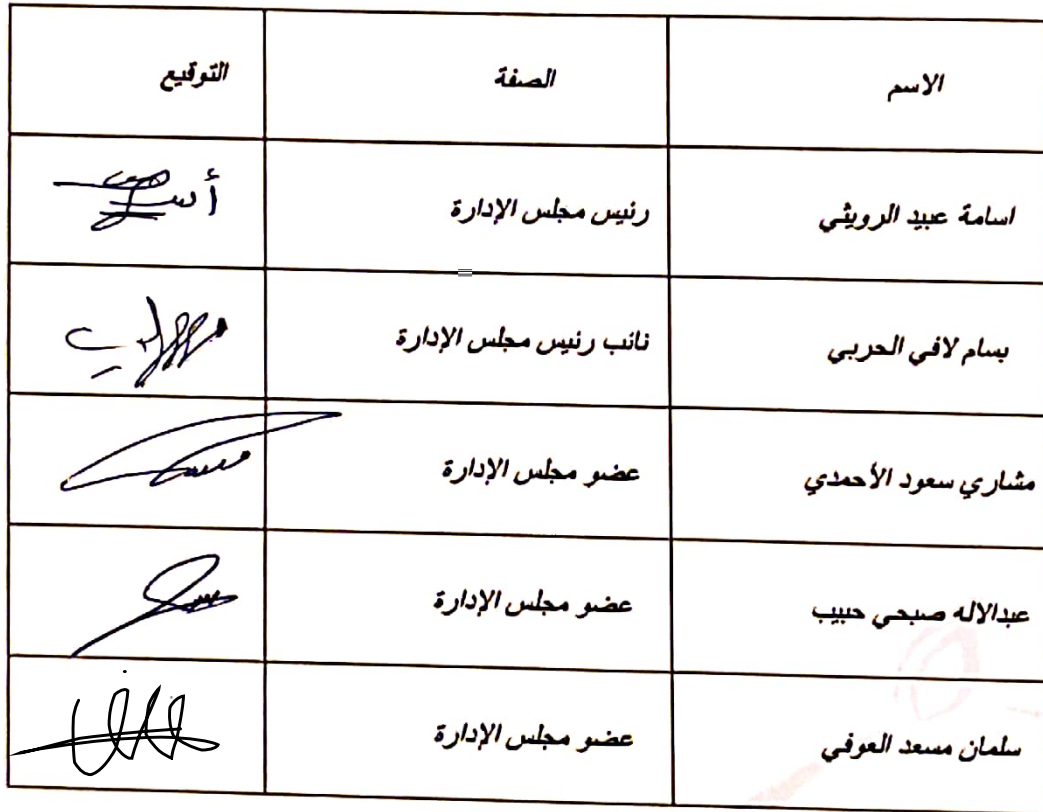 الاسم الصفة التوقيع
اسامة عبيد الرويثي رئيس مجلس الإدارة
بسام لافي الحربي نائب رئيس مجلس الإدارة
مشاري سعود الأحمدي عضو مجلس الإدارة
عبدالاله صبحي حبيب عضو مجلس الإدارة
سلمان مسعد العوفي عضو مجلس الإدارة